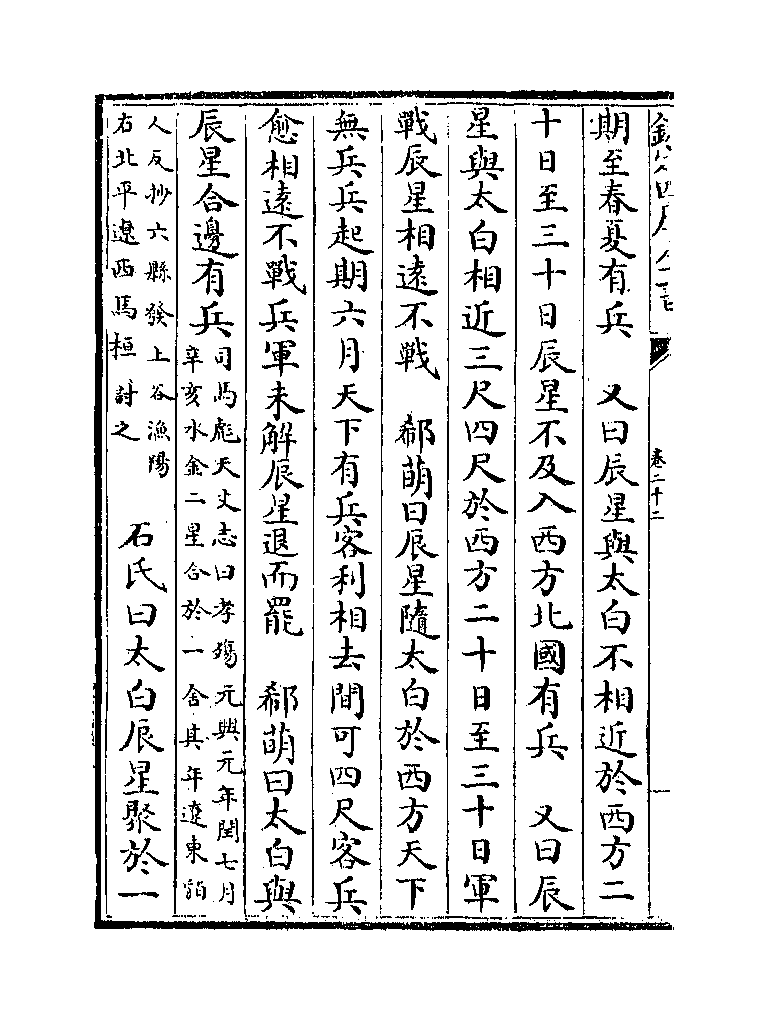 欽定四庫全書
卷二十二
期至春夏有兵　又曰辰星與太白不相近於西方二
十日至三十日辰星不及入西方北國有兵　又曰辰
星與太白相近三尺四尺於西方二十日至三十日軍
戰辰星相遠不戰　郗萌曰辰星隨太白於西方天下
無兵兵起期六月天下有兵客利相去間可四尺客兵
愈相遠不戰兵軍未解辰星退而罷　郗萌曰太白與
辰星合邊有兵
司馬彪天文志曰孝殤元興元年閏七月
辛亥水金二星合於一舍其年遼東貊
人反抄六縣發上谷漁陽
右北平遼西烏桓討之
石氏曰太白辰星聚於一